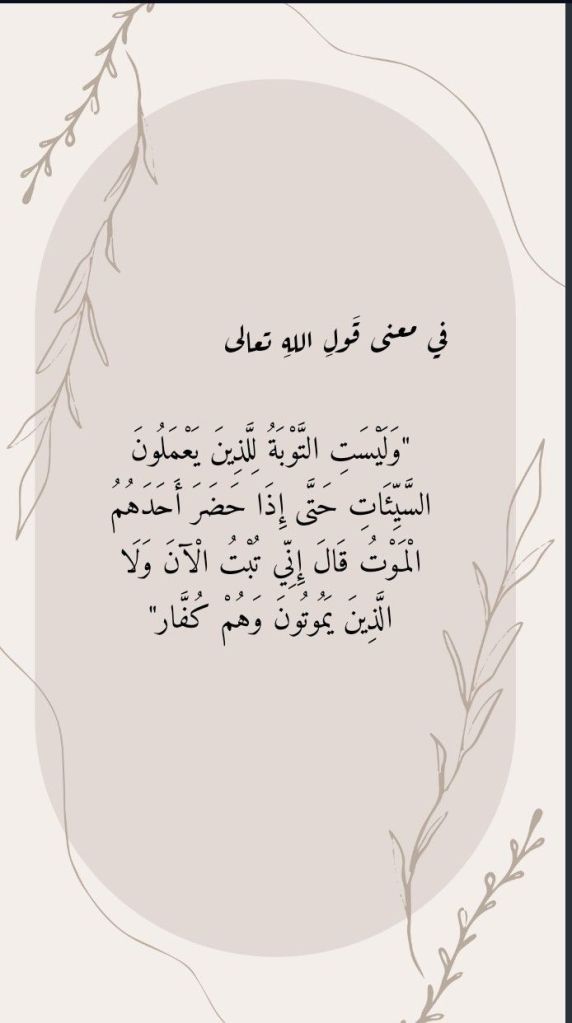 في معنى قَولِ اللهِ تعالى
"وَلَيْسَتِ التَّوْبَةُ لِلَّذِينَ يَعْمَلُونَ
السَّيِّئَاتِ حَتَّى إِذَا حَضَرَ أَحَدَهُمُ
الْمَوْتُ قَالَ إِنِّي تُبْتُ الْآنَ وَلَا
الَّذِينَ يَمُوتُونَ وَهُمْ كُفَّار"